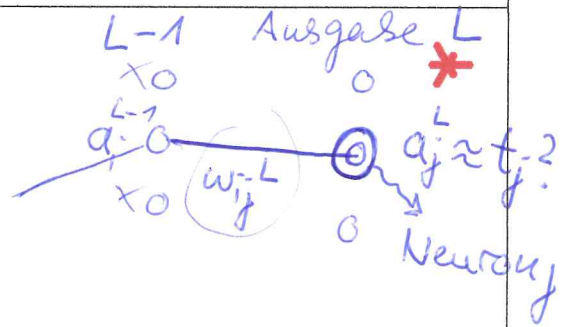 L-1 Ausgabe L
xo o
a_i^{L-1} o w_{ij}^L a_j^L ≈ t_j?
xo o
Neuron j